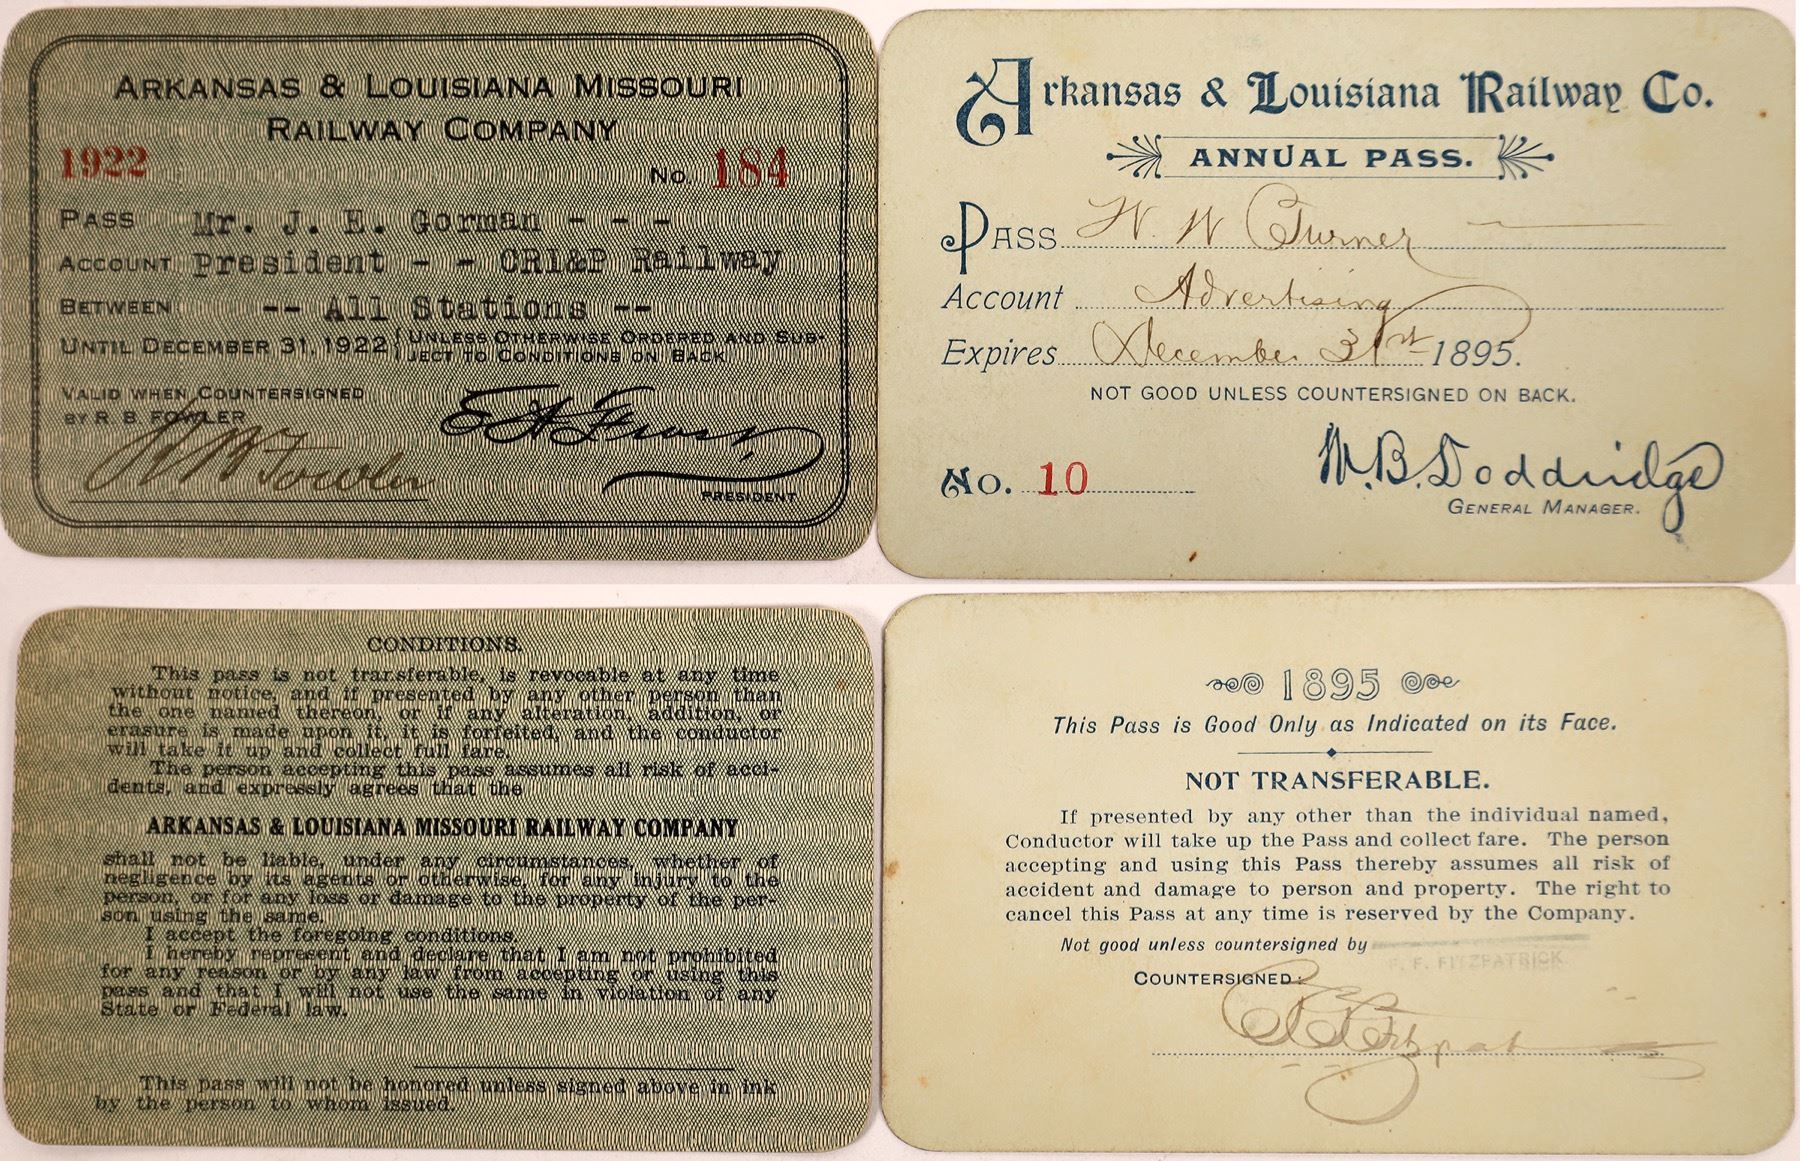 ARKANSAS & LOUISIANA MISSOURI
RAILWAY COMPANY
1922
No. 184
PASS Mr. J. E. Gorman - - -
ACCOUNT President - - CRI&P Railway
BETWEEN -- All Stations --
UNTIL DECEMBER 31, 1922 { UNLESS OTHERWISE ORDERED AND SUB-
JECT TO CONDITIONS ON BACK
VALID WHEN COUNTERSIGNED
BY R. B. FOWLER
R B Fowler
E A Frost
PRESIDENT
Arkansas & Louisiana Railway Co.
ANNUAL PASS.
PASS W. W Turner
Account Advertising
Expires December 31st 1895.
NOT GOOD UNLESS COUNTERSIGNED ON BACK.
No. 10
W. B. Doddridge
GENERAL MANAGER.
CONDITIONS.
This pass is not transferable, is revocable at any time
without notice, and if presented by any other person than
the one named thereon, or if any alteration, addition, or
erasure is made upon it, it is forfeited, and the conductor
will take it up and collect full fare.
The person accepting this pass assumes all risk of acci-
dents, and expressly agrees that the
ARKANSAS & LOUISIANA MISSOURI RAILWAY COMPANY
shall not be liable, under any circumstances, whether of
negligence by its agents or otherwise, for any injury to the
person, or for any loss or damage to the property of the per-
son using the same.
I accept the foregoing conditions.
I hereby represent and declare that I am not prohibited
for any reason or by any law from accepting or using this
pass and that I will not use the same in violation of any
State or Federal law.
This pass will not be honored unless signed above in ink
by the person to whom issued.
1895
This Pass is Good Only as Indicated on its Face.
NOT TRANSFERABLE.
If presented by any other than the individual named,
Conductor will take up the Pass and collect fare. The person
accepting and using this Pass thereby assumes all risk of
accident and damage to person and property. The right to
cancel this Pass at any time is reserved by the Company.
Not good unless countersigned by
F. F. FITZPATRICK
COUNTERSIGNED:
F F Fitzpatrick